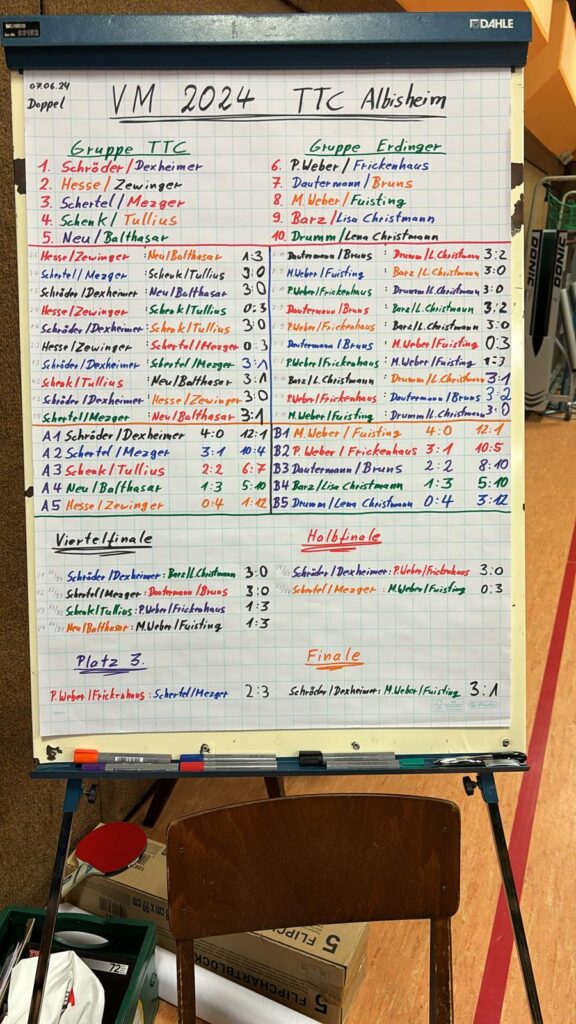 DAHLE
07.06.24
Doppel
VM 2024 TTC Albisheim
Gruppe TTC
1. Schröder/Dexheimer
2. Hesse/Zewinger
3. Schertel/Mezger
4. Schenk/Tullius
5. Neu/Balthasar
Gruppe Erdinger
6. P.Weber/Frickenhaus
7. Dautermann/Bruns
8. M.Weber/Fuisting
9. Barz/Lisa Christmann
10. Drumm/Lena Christmann
Hesse/Zewinger : Neu/Balthasar 1:3
Schertel/Mezger : Schenk/Tullius 3:0
Schröder/Dexheimer : Neu/Balthasar 3:0
Hesse/Zewinger : Schenk/Tullius 0:3
Schröder/Dexheimer : Schenk/Tullius 3:0
Hesse/Zewinger : Schertel/Mezger 0:3
Schröder/Dexheimer : Schertel/Mezger 3:1
Schenk/Tullius : Neu/Balthasar 3:1
Schröder/Dexheimer : Hesse/Zewinger 3:0
Schertel/Mezger : Neu/Balthasar 3:1
Dautermann/Bruns : Drumm/L.Christmann 3:2
M.Weber/Fuisting : Barz/L.Christmann 3:0
P.Weber/Frickenhaus : Drumm/L.Christmann 3:0
Dautermann/Bruns : Barz/L.Christmann 3:2
P.Weber/Frickenhaus : Barz/L.Christmann 3:0
Dautermann/Bruns : M.Weber/Fuisting 0:3
P.Weber/Frickenhaus : M.Weber/Fuisting 1:3
Barz/L.Christmann : Drumm/L.Christmann 3:1
P.Weber/Frickenhaus : Dautermann/Bruns 3:2
M.Weber/Fuisting : Drumm/L.Christmann 3:0
A1 Schröder/Dexheimer 4:0 12:1
A2 Schertel/Mezger 3:1 10:4
A3 Schenk/Tullius 2:2 6:7
A4 Neu/Balthasar 1:3 5:10
A5 Hesse/Zewinger 0:4 1:12
B1 M.Weber/Fuisting 4:0 12:1
B2 P.Weber/Frickenhaus 3:1 10:5
B3 Dautermann/Bruns 2:2 8:10
B4 Barz/Lisa Christmann 1:3 5:10
B5 Drumm/Lena Christmann 0:4 3:12
Viertelfinale
Schröder/Dexheimer : Barz/L.Christmann 3:0
Schertel/Mezger : Dautermann/Bruns 3:0
Schenk/Tullius : P.Weber/Frickenhaus 1:3
Neu/Balthasar : M.Weber/Fuisting 1:3
Halbfinale
Schröder/Dexheimer : P.Weber/Frickenhaus 3:0
Schertel/Mezger : M.Weber/Fuisting 0:3
Platz 3.
P.Weber/Frickenhaus : Schertel/Mezger 2:3
Finale
Schröder/Dexheimer : M.Weber/Fuisting 3:1
5 FLIPCHARTBLOCK
72